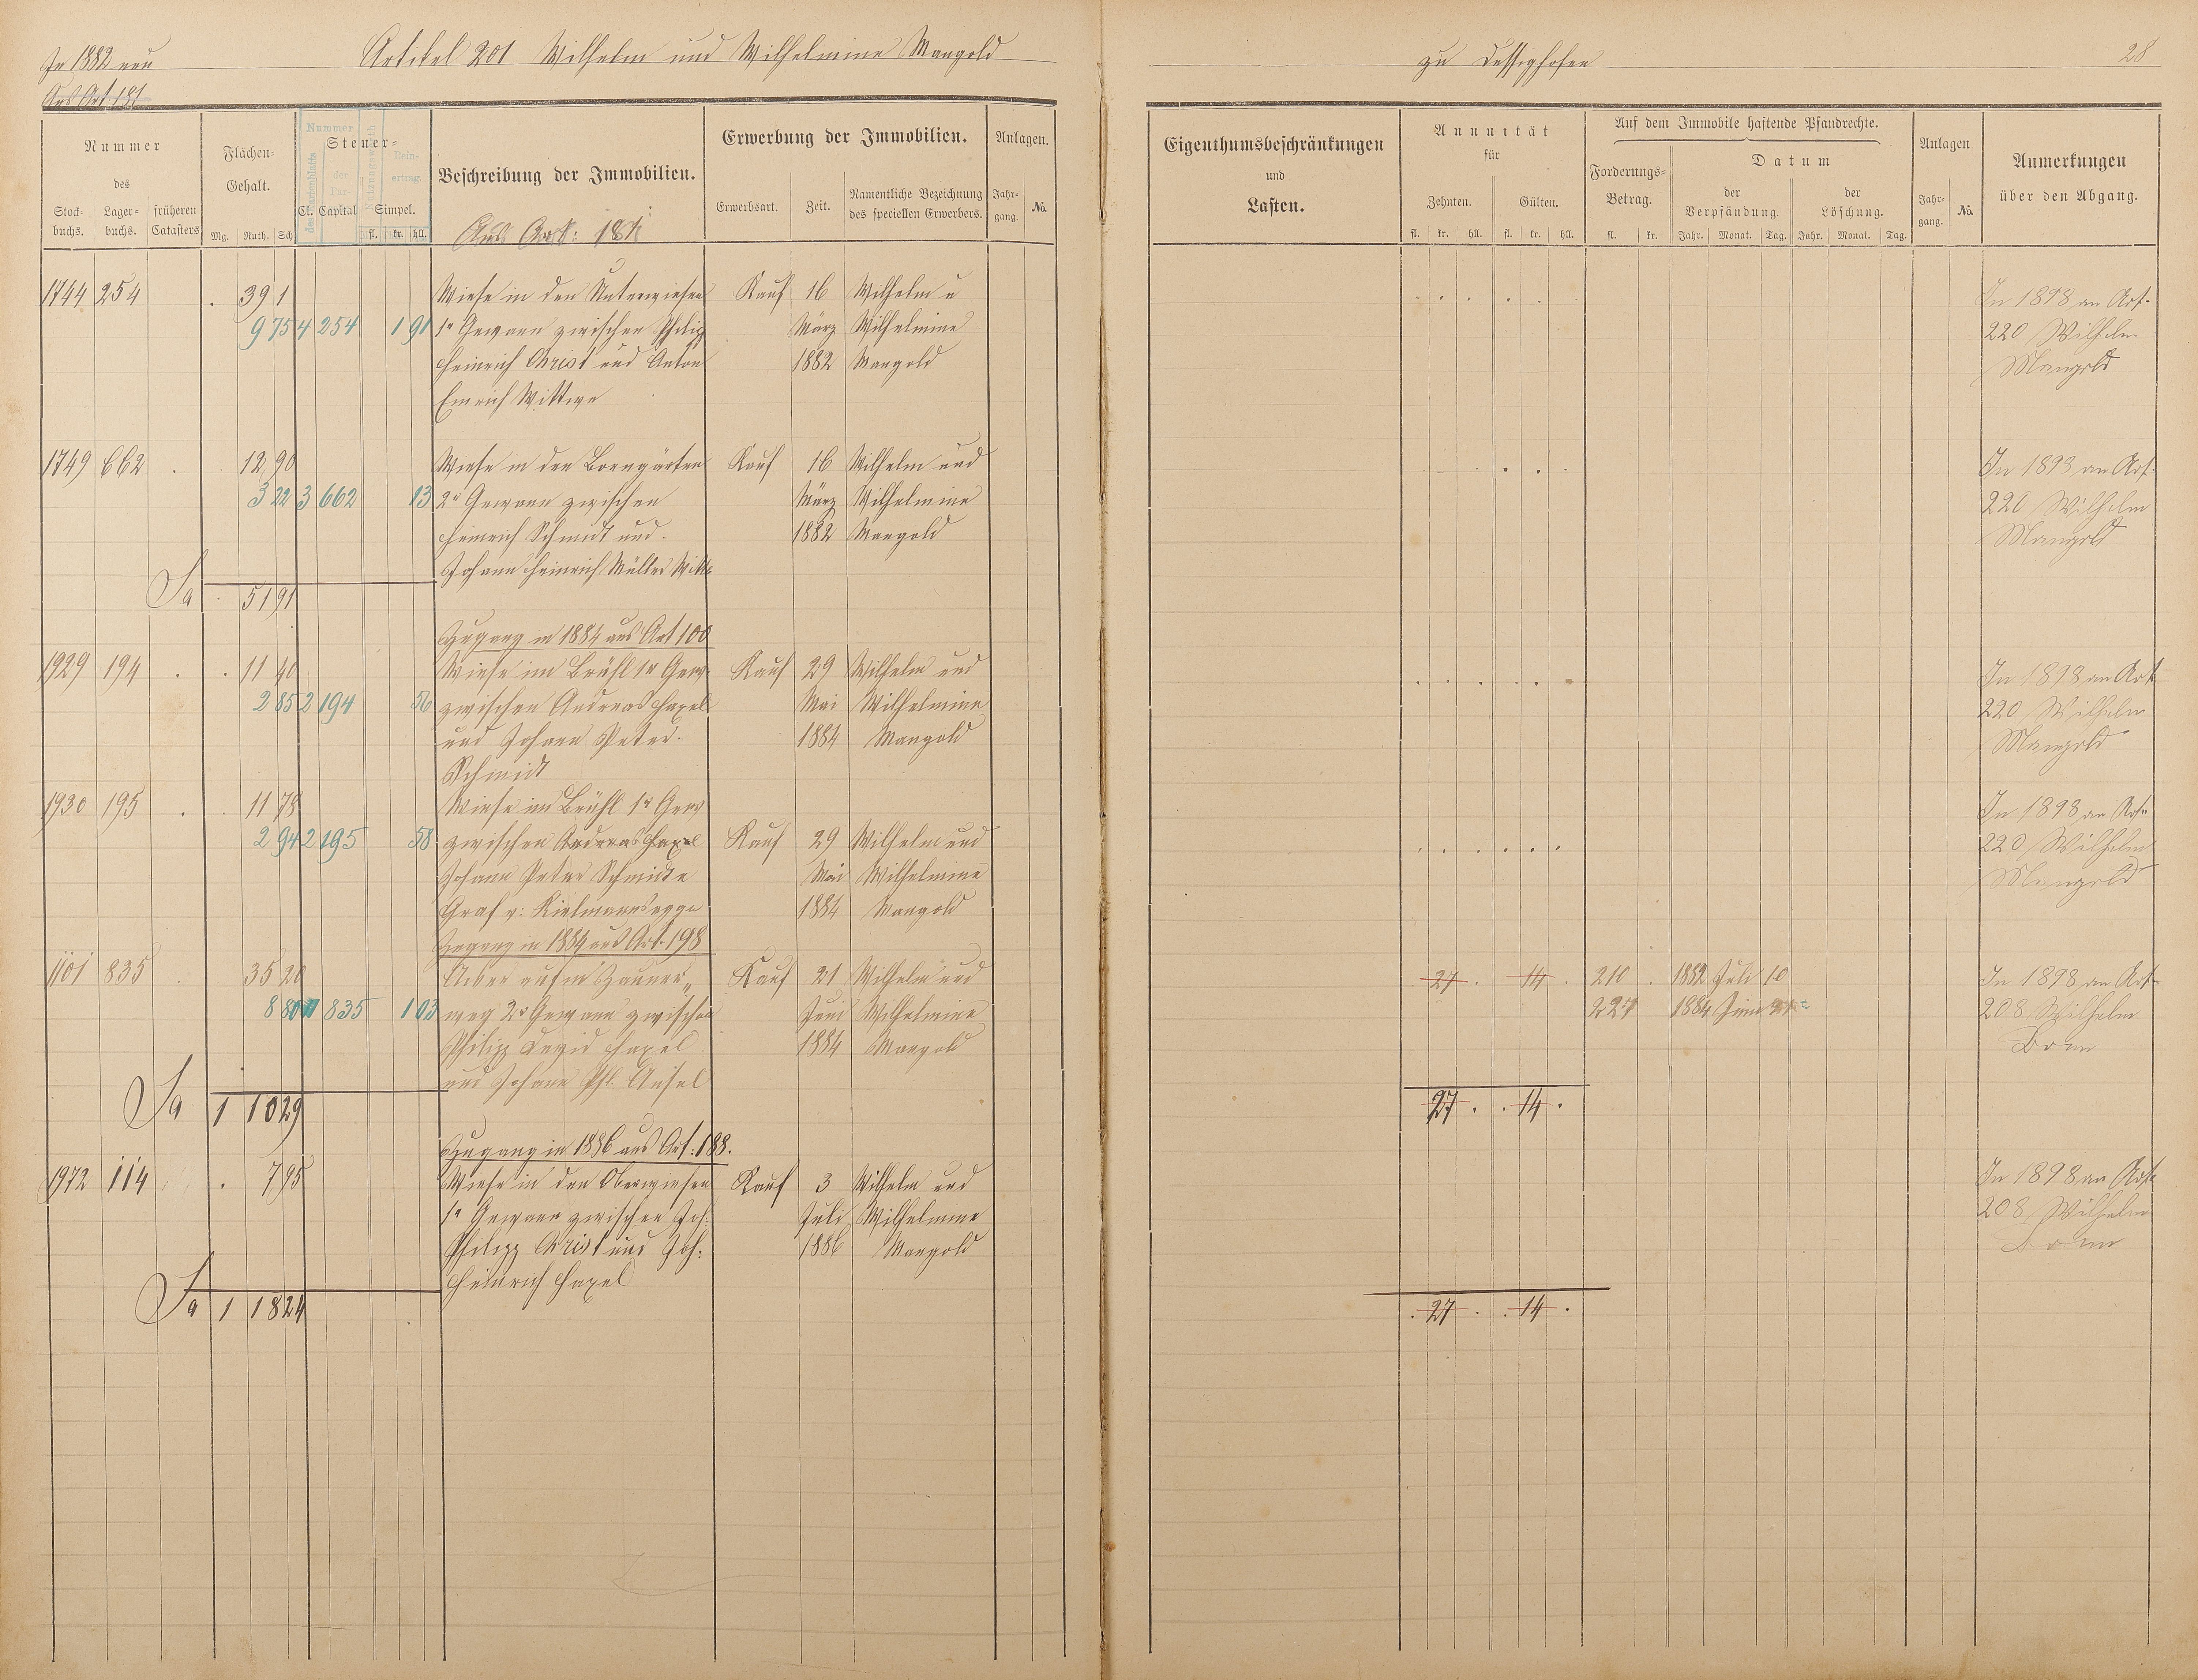 In 1882 neu
Artikel 201 Wilhelm und Wilhelmine Mangold
zu Dessighofen
28
Aus Art. 181
Nummer
des
Stock-
buchs.
Lager-
buchs.
früheren
Catasters
Flächen-
Gehalt.
Mg. Ruth. Sch
Steuer-
Cl. Capital Simpel.
fl. kr. hll.
Nummer
des Kartenblatts
der
Rein-
ertrag.
Beschreibung der Immobilien.
Aus Art: 181
Erwerbung der Immobilien.
Erwerbsart.
Zeit.
Namentliche Bezeichnung
des speciellen Erwerbers.
Anlagen.
Jahr-
gang.
No.
Eigenthumsbeschränkungen
und
Lasten.
Annuität
für
Zehnten. Gülten.
fl. kr. hll. fl. kr. hll.
Auf dem Immobile haftende Pfandrechte.
Forderungs-
Betrag.
fl. kr.
Datum
der
Verpfändung.
Jahr. Monat. Tag.
der
Löschung.
Jahr. Monat. Tag.
Anlagen
Jahr-
gang.
No.
Anmerkungen
über den Abgang.
1744 254 . 39 1 Wiese in den Unterwiesen Kauf 16 Wilhelm u In 1898 an Art.
9 75 4 254 1 91 1r Gewann zwischen Philipp März Wilhelmine 220 Wilhelm
Heinrich Christ und Anton 1882 Mangold Mangold
Emrich Wittwe
1749 662 . 12 90 Wiese in den Borngärten Kauf 16 Wilhelm und In 1893 an Art
3 22 3 662 13 2r Gewann zwischen März Wilhelmine 220 Wilhelm
Heinrich Schmidt und 1882 Mangold Mangold
Johann Heinrich Müller Wittw
Sa . 51 91
Zugang in 1884 aus Art 100
1929 194 . . 11 40 Wiese im Brühl 1r Gew. Kauf 29 Wilhelm und In 1898 an Art
2 85 2 194 56 zwischen Andreas Hazel Mai Wilhelmine 220 Wilhelm
und Johann Peter 1884 Mangold Mangold
Schmidt
1930 195 . . 11 78 Wiese im Brühl 1r Gew In 1898 an Art
2 94 2 195 58 zwischen Andreas Hazel Kauf 29 Wilhelm und 220 Wilhelm
Johann Peter Schmidt Mai Wilhelmine Mangold
Graf v: Kielmannsegge 1884 Mangold
Zugang in 1884 aus Art. 198
1101 835 35 20 Acker aufm Kauf 21 Wilhelm und 27 . 14 . 210 . 1882 Juli 10 In 1898 an Art
8 80 835 1 03 weg 2r Gewann zwischen Juni Wilhelmine 227 1884 Juni 21 208 Wilhelm
Philipp David Hazel 1884 Mangold Bonn
und Johann Phl. Ansel
Sa 1 10 29 27 . . 14 .
Zugang in 1886 aus Art: 188.
1972 114 . 7 95 Wiese in den Oberwiesen Kauf 3 Wilhelm und In 1898 an Art
1r Gewann zwischen Joh: Juli Wilhelmine 208 Wilhelm
Philipp Christ und Joh: 1886 Mangold Bonn
Heinrich Hazel
Sa 1 18 24 . 27 . . 14 .